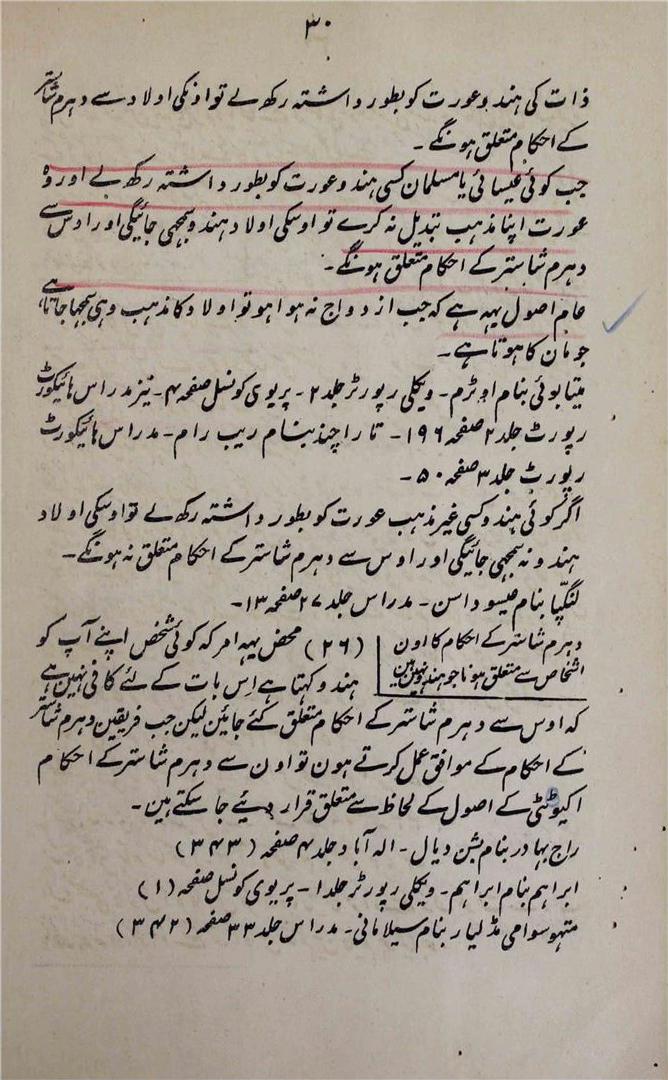 ۳۰
ذات کی ہندو عورت کو بطور داشتہ رکھ لے تو اونکی اولاد سے دہرم شاستر
کے احکام متعلق ہونگے۔
جب کوئی عیسائی یا مسلمان کسی ہندو عورت کو بطور داشتہ رکھ لے اور وہ
عورت اپنا مذہب تبدیل نہ کرے تو اوسکی اولاد ہندو سمجھی جائیگی اور اوس سے
دہرم شاستر کے احکام متعلق ہونگے۔
عام اصول یہہ ہے کہ جب ازدواج نہ ہوا ہو تو اولاد کا مذہب وہی سمجھا جاتا ہے
جو مان کا ہوتا ہے۔
میتا بوئی بنام اوٹرم۔ ویکلی رپورٹر جلد ۲۔ پریوی کونسل صفحہ ۴۔ نیز مدراس ہائیکورٹ
رپورٹ جلد ۲ صفحہ ۱۹۶۔ تاراچند بنام ریب رام۔ مدراس ہائیکورٹ
رپورٹ جلد ۳ صفحہ ۵۰۔
اگر کوئی ہندو کسی غیر مذہب عورت کو بطور داشتہ رکھ لے تو اوسکی اولاد
ہندو نہ سمجھی جائیگی اور اوس سے دہرم شاستر کے احکام متعلق نہ ہونگے۔
لنگپا بنام عیسوداسن۔ مدراس جلد ۲۷ صفحہ ۱۳۔
دہرم شاستر کے احکام کا اون
اشخاص سے متعلق ہونا جو ہندو نہیں ہین
(۲۶) محض یہہ امر کہ کوئی شخص اپنے آپ کو
ہندو کہتا ہے اِس بات کے لئے کافی نہین ہے
کہ اوس سے دہرم شاستر کے احکام متعلق کئے جائین لیکن جب فریقین دہرم شاستر
کے احکام کے موافق عمل کرتے ہون تو اون سے دہرم شاستر کے احکام
اکیوٹٹی کے اصول کے لحاظ سے متعلق قرار دیئے جا سکتے ہین۔
راج بہادر بنام بشن دیال۔ الہ آباد جلد ۴ صفحہ (۳۴۳)
ابراہم بنام ابراہم۔ ویکلی رپورٹر جلد ۱۔ پریوی کونسل صفحہ (۱)
متہو سوامی مڈلیار بنام سیلامانی۔ مدراس جلد ۳۳ صفحہ (۳۴۲)